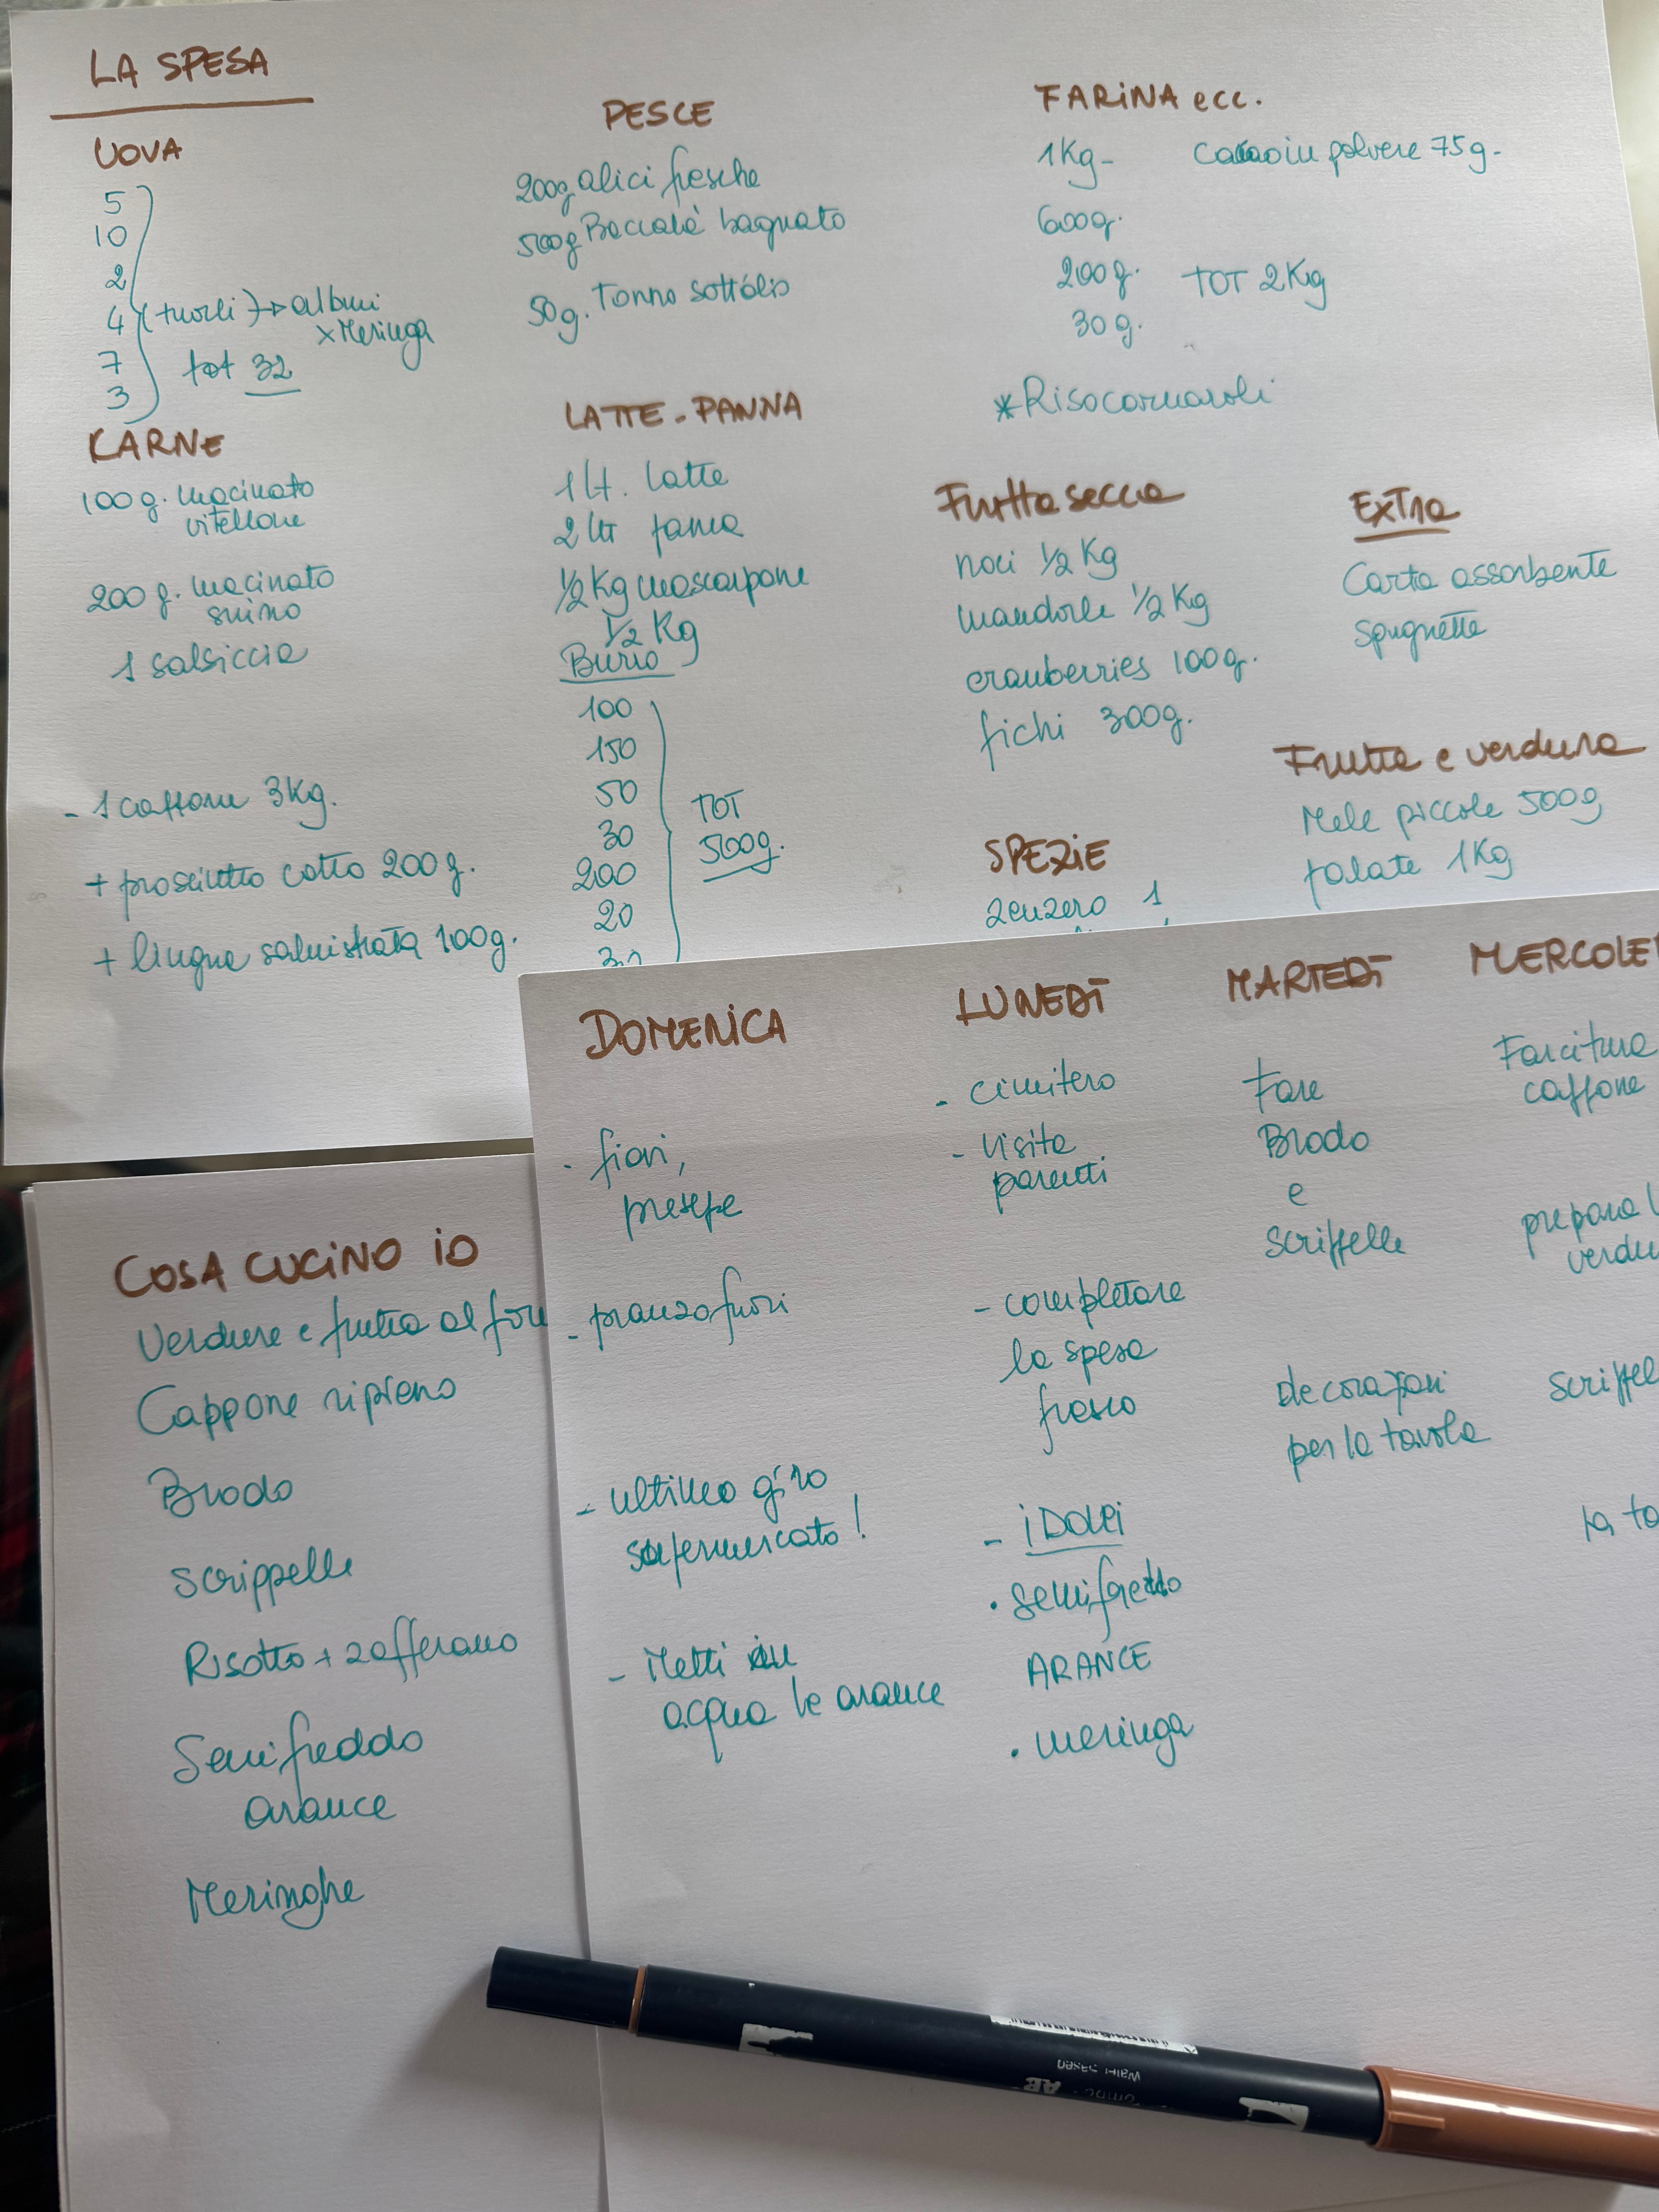 LA SPESA
UOVA
5
10
2
4 (tuorli) → albumi
x Meringa
7
3
tot 32
KARNE
100 g. macinato
vitellone
200 g. macinato
suino
1 salsiccia
- 1 cappone 3Kg.
+ prosciutto cotto 200 g.
+ lingua salmistrata 100g.
PESCE
200g alici fresche
500g Baccalà bagnato
50g. Tonno sottólio
LATTE - PANNA
1 lt. latte
2 lt panna
1/2 Kg mascarpone
1/2 Kg
Burro
100
150
50
30
200
20
30
TOT
500g.
FARINA ecc.
1Kg - cacao in polvere 75g -
600g.
200g. TOT 2Kg
30g.
*Riso carnaroli
Frutta secca
noci 1/2 Kg
mandorle 1/2 Kg
cranberries 100g.
fichi 300g.
EXTRA
Carta assorbente
spugnette
Frutta e verdura
Mele piccole 500g
patate 1Kg
SPEZIE
zenzero 1
DOMENICA
- fiori,
presepe
- pranzo fuori
- ultimo giro
supermercato!
- Metti in
acqua le arance
LUNEDÌ
- cimitero
- visita
parenti
- completare
la spesa
fresco
- i Dolci
• semifreddo
ARANCE
• meringa
MARTEDÌ
Fare
Brodo
e
scrippelle
decorazioni
per la tavola
MERCOLE
Farcitura
cappone
prepara
verdu
scrippel
la ta
COSA CUCINO iO
Verdure e frutta al forn
Cappone ripieno
Brodo
scrippelle
Risotto + zafferano
Semifreddo
arance
Meringhe